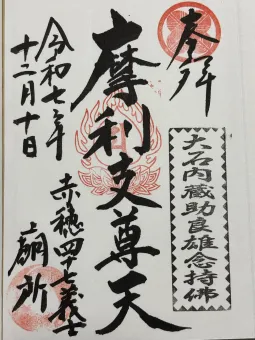 奉拝
大石内蔵助良雄念持佛
摩利支尊天
赤穂四十七義士
廟所
令和七年
十二月十日